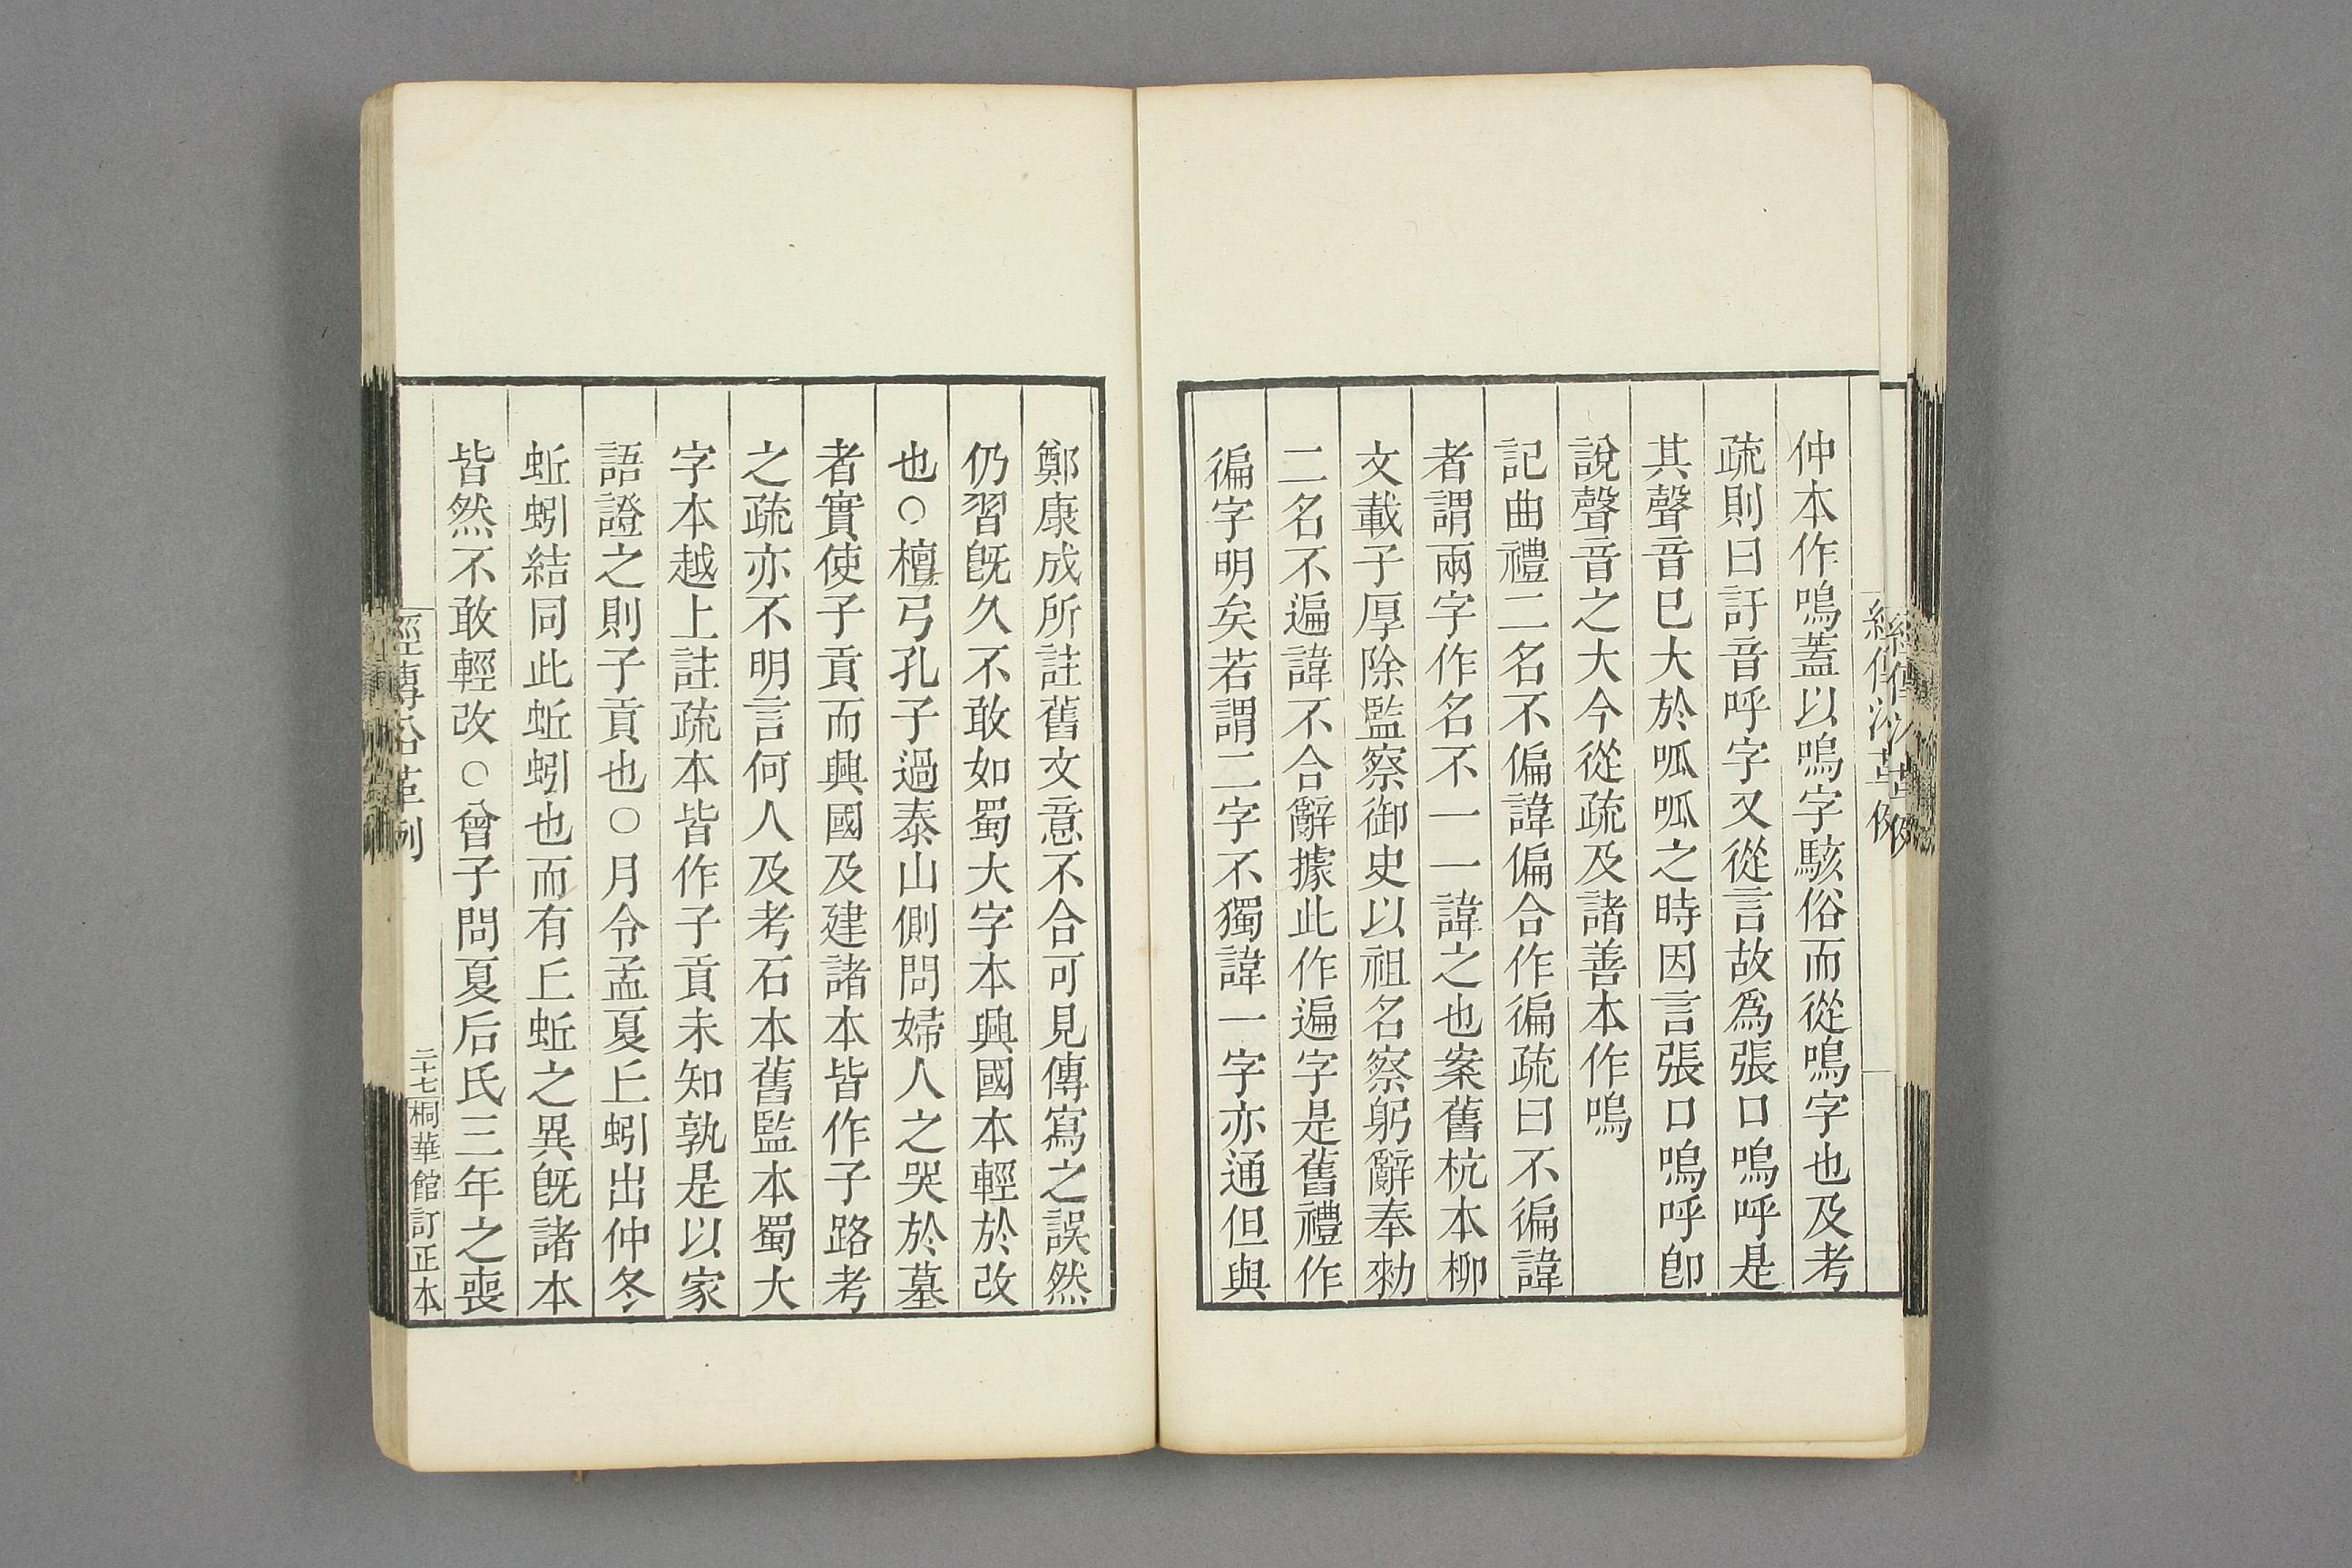 仲本作嗚蓋以嗚字駭俗而從鳴字也及考
疏則曰訏音呼字又從言故爲張口嗚呼是
其聲音巳大於呱呱之時因言張口嗚呼卽
說聲音之大今從疏及諸善本作嗚
記曲禮二名不偏諱偏合作徧疏曰不徧諱
者謂兩字作名不一一諱之也案舊杭本柳
文載子厚除監察御史以祖名察躬辭奉勑
二名不遍諱不合辭據此作遍字是舊禮作
徧字明矣若謂二字不獨諱一字亦通但與
鄭康成所註舊文意不合可見傳寫之誤然
仍習旣久不敢如蜀大字本興國本輕於改
也○檀弓孔子過泰山側問婦人之哭於墓
者實使子貢而興國及建諸本皆作子路考
之疏亦不明言何人及考石本舊監本蜀大
字本越上註疏本皆作子貢未知孰是以家
語證之則子貢也○月令孟夏丘蚓出仲冬
蚯蚓結同此蚯蚓也而有丘蚯之異旣諸本
皆然不敢輕改○曾子問夏后氏三年之喪
經傳沿革例
二十七
桐華館訂正本